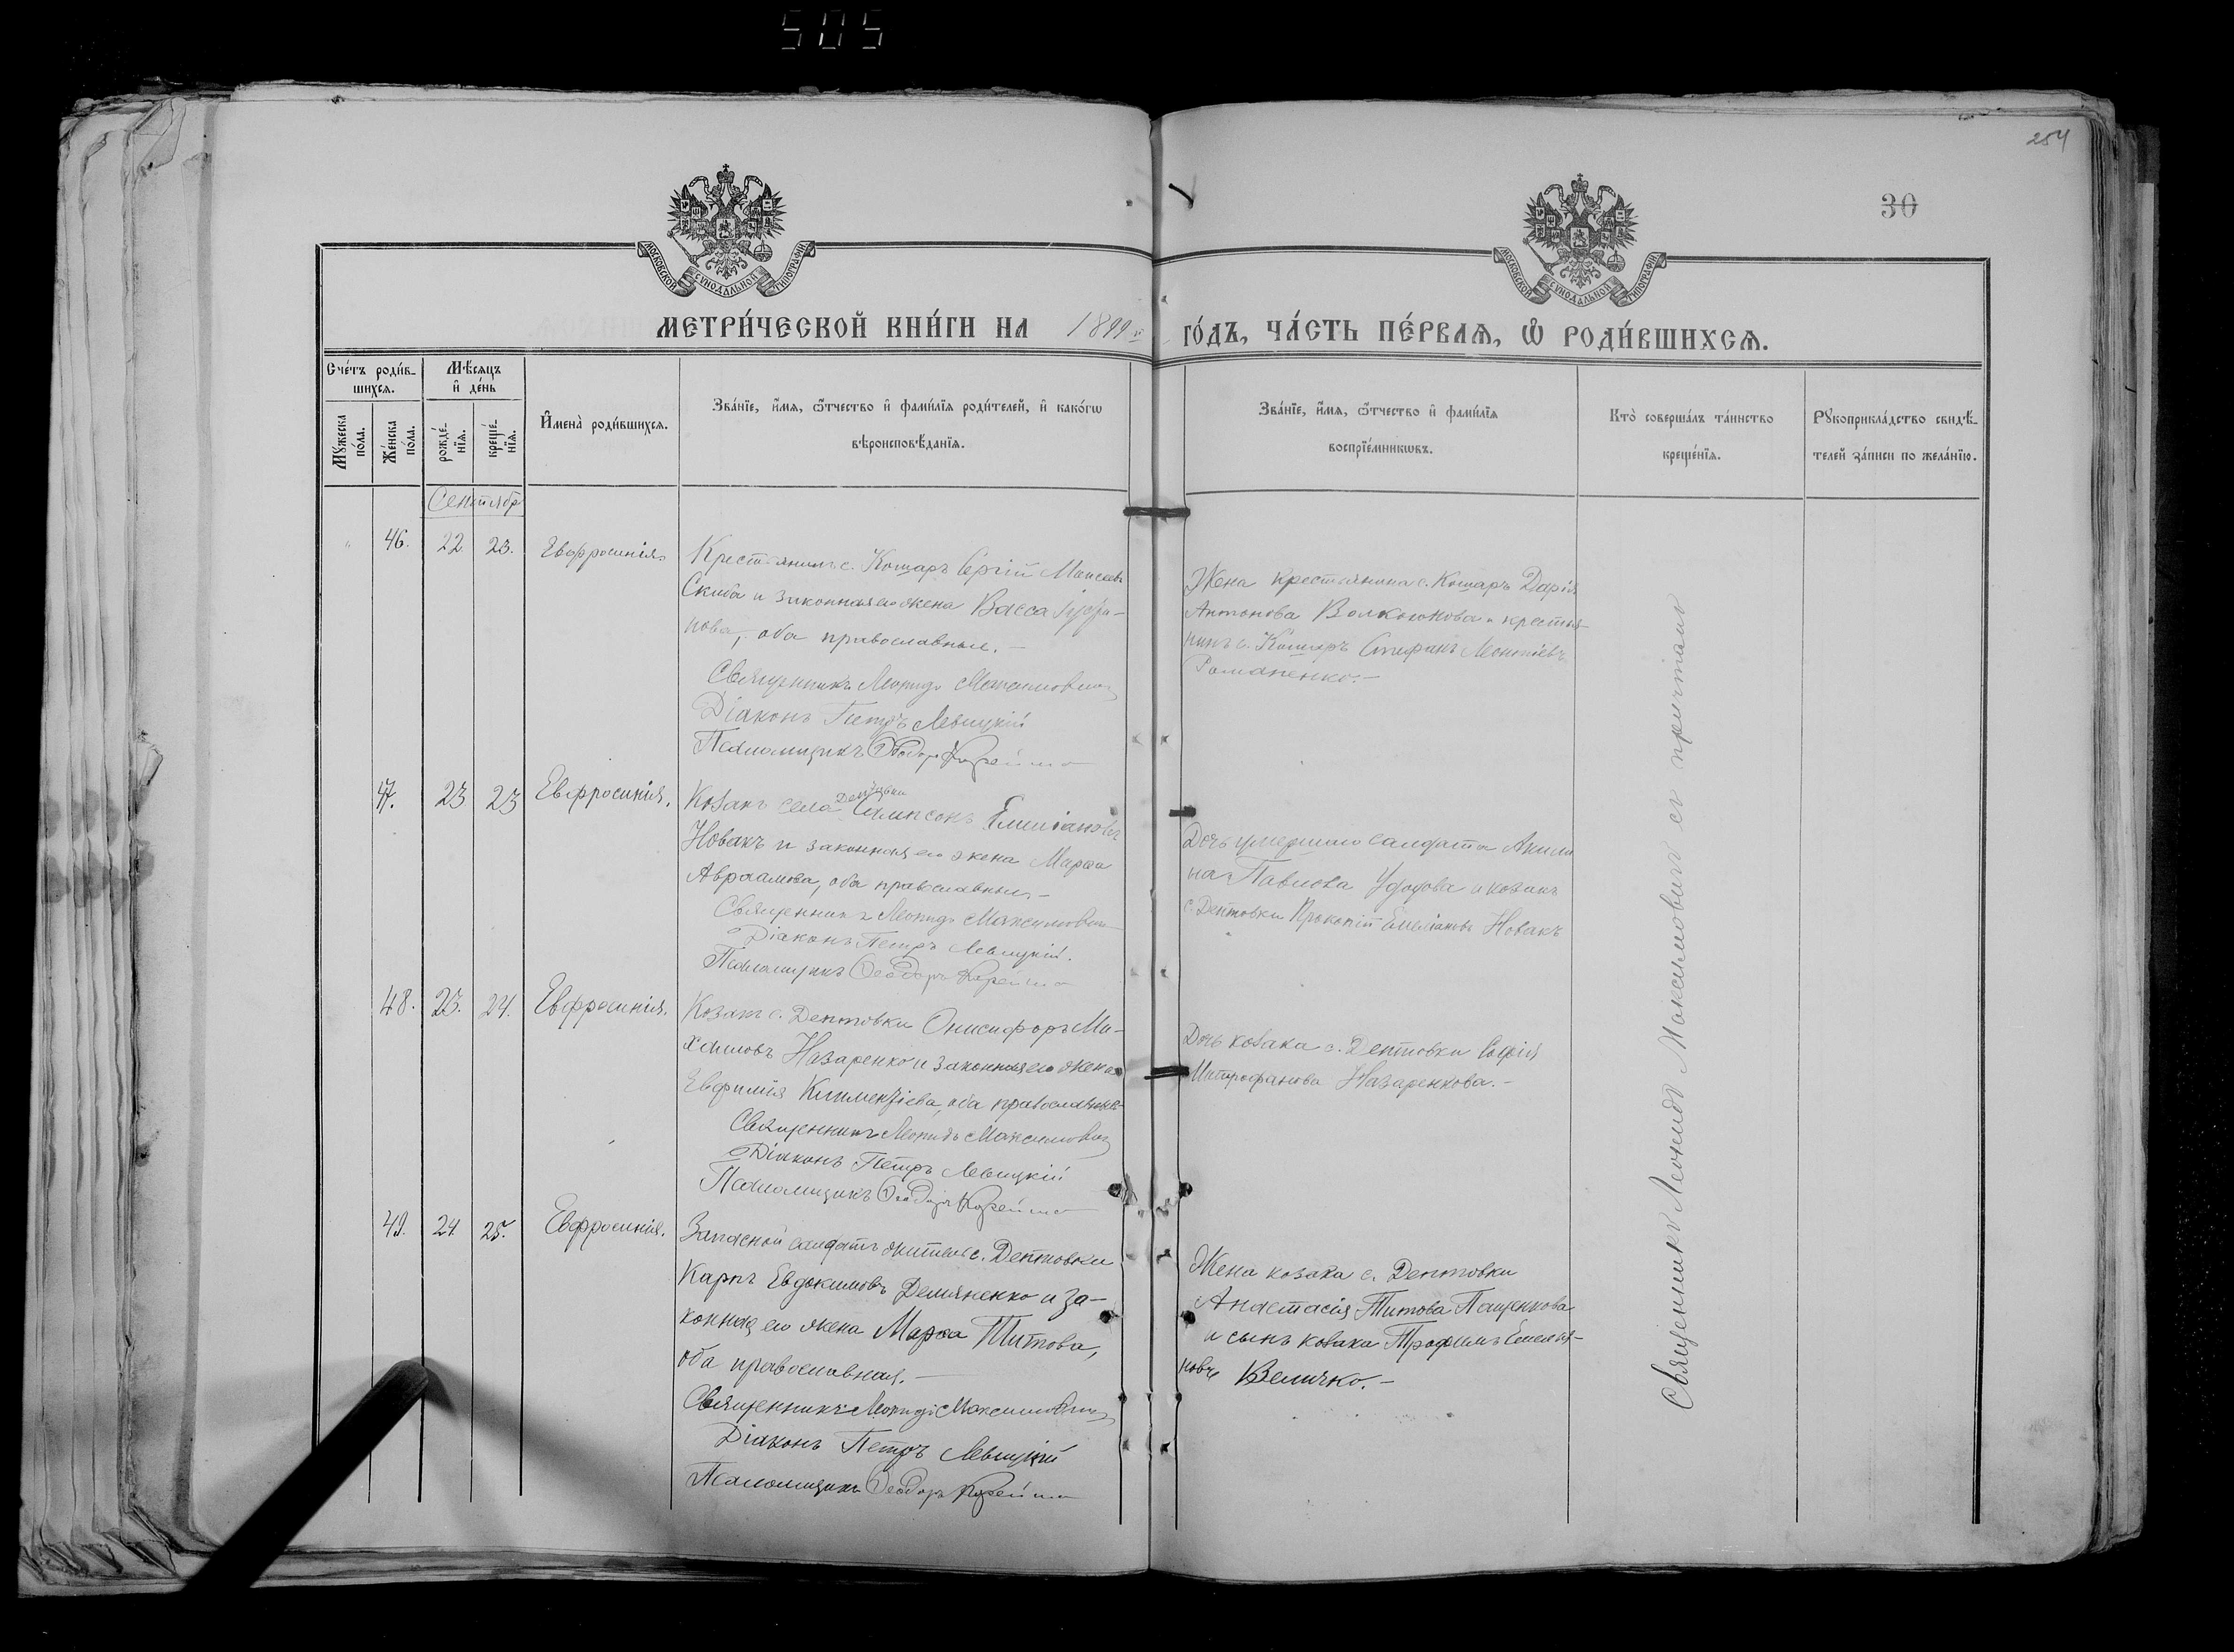 505
254
30
МОСКОВСКОЙ СѴНОДАЛЬНОЙ ТИПОГРАФІИ
МОСКОВСКОЙ СѴНОДАЛЬНОЙ ТИПОГРАФІИ
МЕТРИ́ЧЕСКОЙ КНИ́ГИ НА 1899
ГО́ДЪ, ЧА́СТЬ ПЕ́РВАѦ, Ѽ РОДИ́ВШИХСѦ.
Сче́тъ роди́в-
шихсѧ.
Мѣ́сѧцъ
и҆ де́нь
Мꙋ́жеска по́ла.
Же́нска по́ла.
рожде́-
нїѧ.
креще́-
нїѧ.
И҆мена̀ роди́вшихсѧ.
Зва́нїе, и҆́мѧ, ѻ҆́тчество и҆ фами́лїѧ роди́телей, и҆ како́гѡ
вѣроисповѣ́данїѧ.
Зва́нїе, и҆́мѧ, ѻ҆́тчество и҆ фами́лїѧ
воспрїе́мникѡвъ.
Кто̀ соверша́лъ та́инство
креще́нїѧ.
Рꙋкоприкла́дство свидѣ́-
телей за́писи по жела́нїю.
Сентябр
46. 22 23. Евфросинія
Крестьянинъ с. Кошаръ Сергій Моисеевъ
Скиба и законная его жена Васса
нова, оба православные. —
Священникъ Леонидъ Максимовичъ
Діаконъ Петръ Левицкій
Псаломщикъ Ѳеодоръ
Жена крестьянина с. Кошаръ Дарія
Антонова Волкогонова и крестья-
нинъ с. Кошаръ Стефанъ Леонтіевъ
Романенко. —
47. 23 23 Евфросинія.
Козакъ села Дептовки Сампсонъ Емиліановъ
Новакъ и законная его жена Марѳа
Авраамова, оба православные. —
Священникъ Леонидъ Максимовичъ
Діаконъ Петръ Левицкій.
Псаломщикъ Ѳеодоръ
Дочь умершаго солдата Акили
на Павлова Удодова и козакъ
с. Дептовки Прокопій Емеліановъ Новакъ
48. 23. 24. Евфросинія.
Козакъ с. Дептовки Онисифоръ Ми-
хаиловъ Назаренко и законная его жена
Евфимія Климентіева, оба православные
Священникъ Леонидъ Максимовичъ
Діаконъ Петръ Левицкій
Псаломщикъ Ѳеодоръ
Дочь козака с. Дептовки Софія
Митрофанова Назаренкова. —
49. 24 25. Евфросинія.
Запасной солдатъ житель с. Дептовки
Карпъ Евдокимовъ Демяненко и за-
конная его жена Марѳа Титова,
оба православная. —
Священникъ Леонидъ Максимовичъ
Діаконъ Петръ Левицкій
Псаломщикъ Ѳеодоръ
Жена козака с. Дептовки
Анастасія Титова Пащенкова
и сынъ козака Трофимъ Емелья-
новъ Величко. —
Священникъ Леонидъ Максимовичъ съ причтомъ